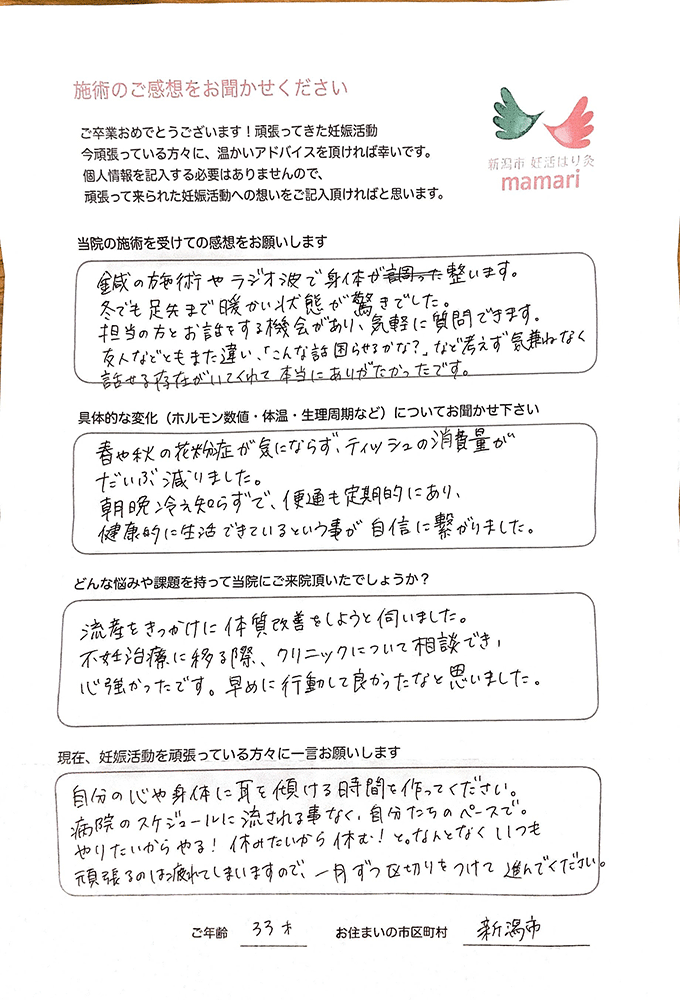 施術のご感想をお聞かせください
ご卒業おめでとうございます！頑張ってきた妊娠活動
今頑張っている方々に、温かいアドバイスを頂ければ幸いです。
個人情報を記入する必要はありませんので、
頑張って来られた妊娠活動への想いをご記入頂ければと思います。
新潟市 妊活はり灸
mamari
当院の施術を受けての感想をお願いします
鍼の施術やラジオ波で身体が整います。
冬でも足先まで暖かい状態が驚きでした。
担当の方とお話をする機会があり、気軽に質問できます。
友人などともまた違い、「こんな話困らせるかな？」など考えず気兼ねなく
話せる存在がいてくれて本当にありがたかったです。
具体的な変化（ホルモン数値・体温・生理周期など）についてお聞かせ下さい
春や秋の花粉症が気にならず、ティッシュの消費量が
だいぶ減りました。
朝晩冷え知らずで、便通も定期的にあり、
健康的に生活できているという事が自信に繋がりました。
どんな悩みや課題を持って当院にご来院頂いたでしょうか？
流産をきっかけに体質改善をしようと伺いました。
不妊治療に移る際、クリニックについて相談でき、
心強かったです。早めに行動して良かったなと思いました。
現在、妊娠活動を頑張っている方々に一言お願いします
自分の心や身体に耳を傾ける時間を作ってください。
病院のスケジュールに流される事なく、自分たちのペースで。
やりたいからやる！休みたいから休む！と。なんとなくいつも
頑張るのは疲れてしまいますので、一月ずつ区切りをつけて進んでください。
ご年齢 33才 お住まいの市区町村 新潟市